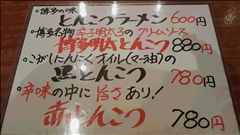 ・博多の味
とんこつラーメン 600円
・博多名物 辛子明太子のクリームソース
博多明太とんこつ 880円
・こがしにんにくオイル(マー油)の
黒とんこつ 780円
辛味の中に旨さあり!
赤とんこつ 780円